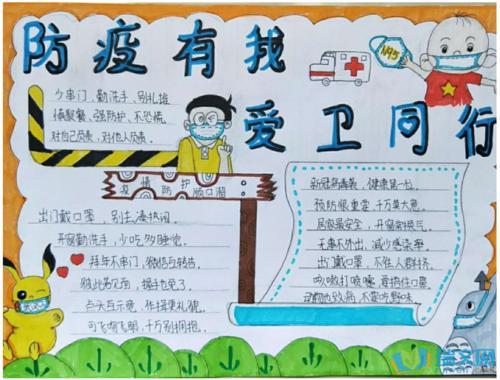 防疫有我
爱卫同行
N95
少串门、勤洗手、别扎堆
慎聚餐、强防护、不恐慌
对自己负责、对他人负责。
疫情防护顺口溜
出门戴口罩，别去凑热闹。
开窗勤洗手，少吃多睡觉。
拜年不串门，微信与转告。
彼此若见面，握手也免了。
点头互示意，作揖更礼貌。
可飞吻飞鸣，千万别拥抱。
新冠病毒袭，健康第一位。
预防很重要，千万莫大意。
居家最安全，开窗常换气。
无事不外出，减少感染率。
出门戴口罩，不往人群挤。
咳嗽打喷嚏，要捂住口鼻。
动物也致病，不要吃野味。